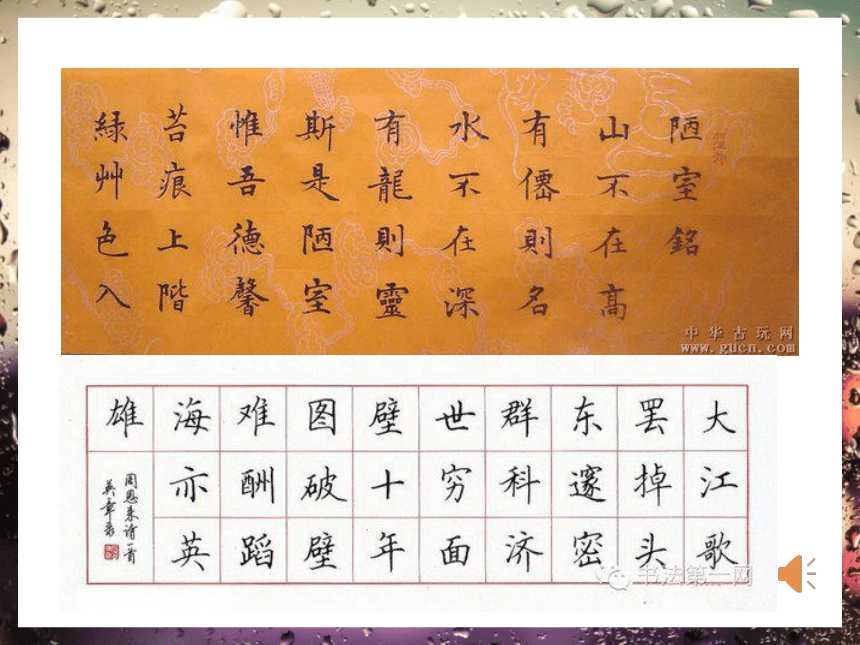 陋室銘
山不在高
有僊則名
水不在深
有龍則靈
斯是陋室
惟吾德馨
苔痕上階
緑艸色入
中华古玩网
www.gucn.com
大江歌
罢掉头
东邃密
群科济
世穷面
壁十年
图破壁
难酬蹈
海亦英
雄
周恩来诗一首
英章录
书法第一网